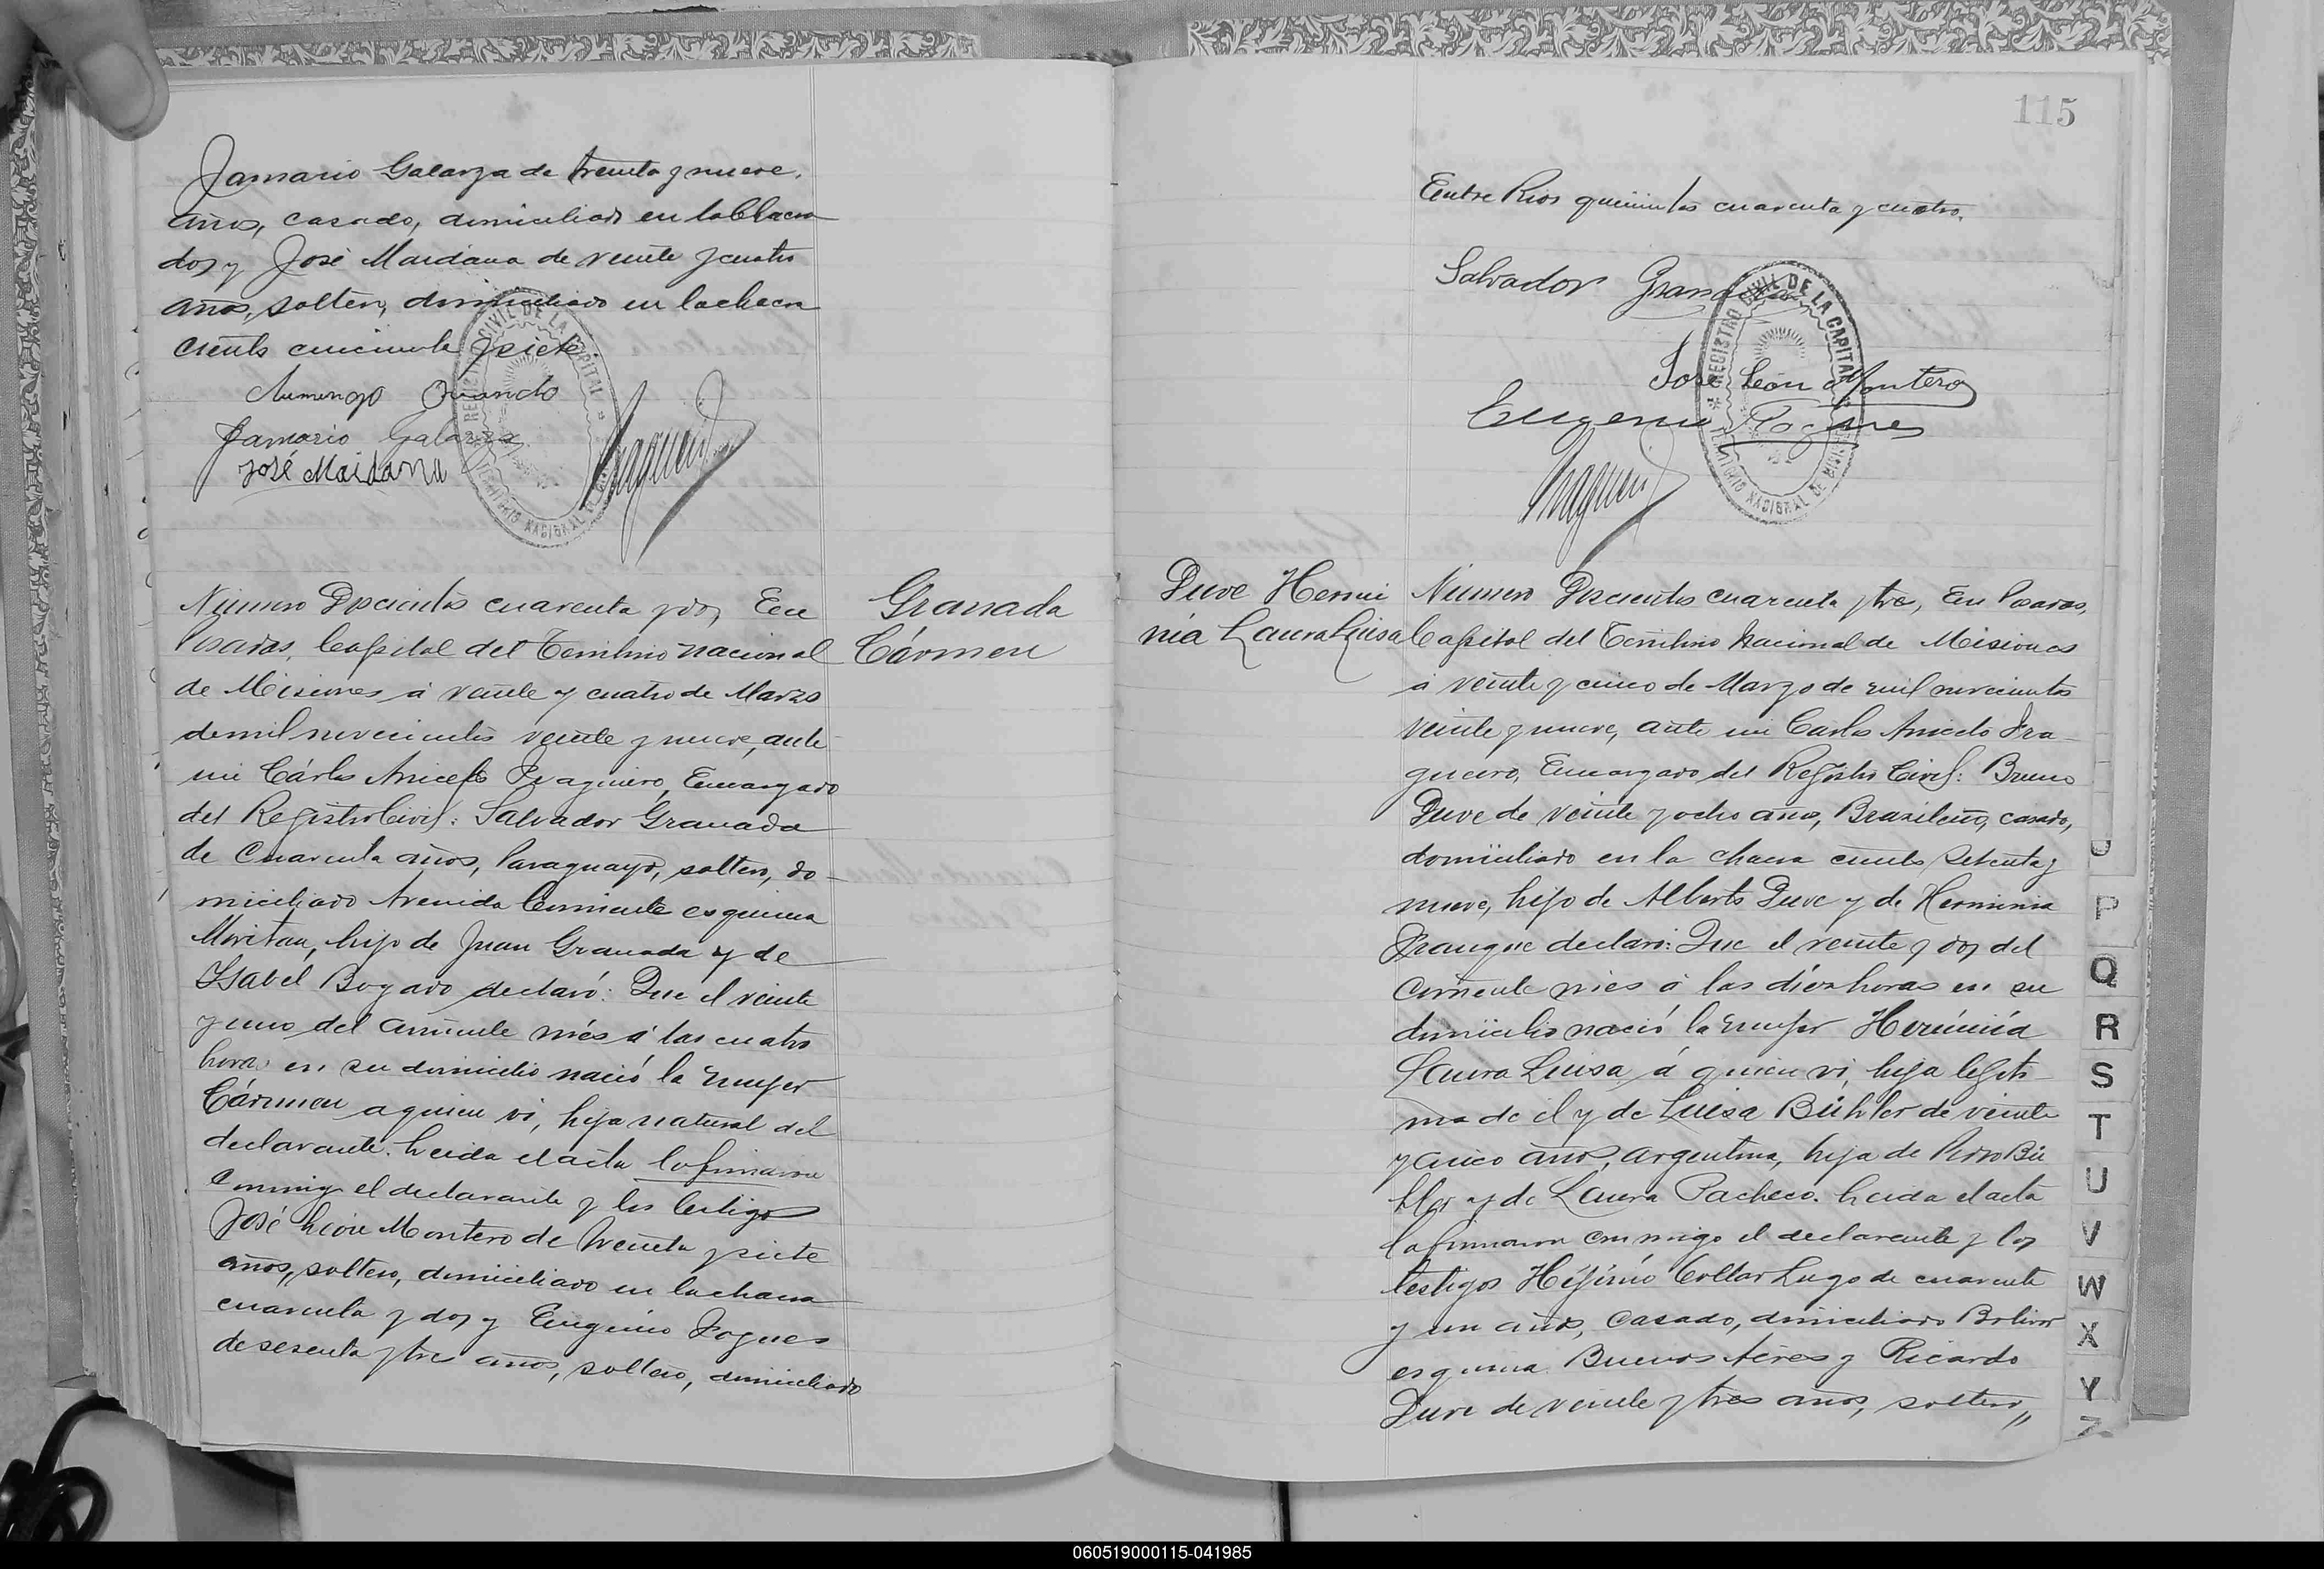 Jamario Galarza de treinta y nueve
años, casado, domiciliado en la chacra
dos y José Maidana de veinte y cuatro
años, soltero, domiciliado en la chacra
ciento cincuenta y siete.
José Maidana
REGISTRO CIVIL DE LA CAPITAL
TERRITORIO NACIONAL DE MISIONES
Número Doscientos cuarenta y dos, En
Posadas, Capital del Territorio nacional
de Misiones á veinte y cuatro de Marzo
de mil novecientos veinte y nueve, ante
mi Cárlos Aniceto Fragueiro, Encargado
del Registro Civil: Salvador Granada
de cuarenta años, Paraguayo, soltero, do-
miciliado Avenida Corriente esquina
Moritan, hijo de Juan Granada y de
Ysabel Bogado declaró: Que el veinte
y uno del corriente més á las cuatro
horas en su domicilio nació la mujer
Cármen a quien vi, hija natural del
declarante. Leida el acta la firmaron
conmigo el declarante y los testigos
José León Montero de treinta y siete
años, soltero, domiciliado en la chacra
cuarenta y dos y Eugenio Rogues
de sesenta y tres años, soltero, domiciliado
Granada
Cármen
115
Entre Rios quinientos cuarenta y cuatro.
Salvador Granada
José León Montero
Eugenio
REGISTRO CIVIL DE LA CAPITAL
TERRITORIO NACIONAL DE MISIONES
Duve Hermi
nia Laura Luisa
Número Doscientos cuarenta y tres, En Posadas,
Capital del Territorio Nacional de Misiones
á veinte y cinco de Marzo de mil novecientos
veinte y nueve, ante mi Carlos Aniceto Fra-
gueiro, Encargado del Registro Civil: Bruno
Duve de veinte y ocho años, Brazileño, casado,
domiciliado en la chacra ciento setenta y
nueve, hijo de Alberto Duve y de Herminia
Prangue declaró: Que el veinte y dos del
corriente mes á las diez horas en su
domicilio nació la mujer Herminia
Laura Luisa á quien vi, hija legiti-
ma de él y de Luisa Bühler de veinte
y cinco años, argentina, hija de Pedro Bü
hler y de Laura Pacheco. Leida el acta
la firmaron conmigo el declarante y los
testigos Higinio Collar Lugo de cuarenta
y un años, casado, domiciliado Bolivar
esquina Buenos Aires y Ricardo
Duve de veinte y tres años, soltero,,
P
Q
R
S
T
U
V
W
X
Y
Z
060519000115-041985